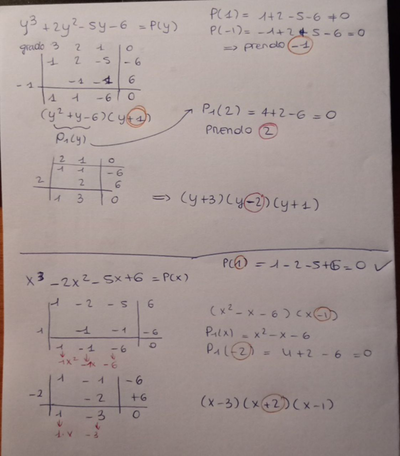 y³ + 2y² - 5y - 6 = P(y)
P(1) = 1+2-5-6 ≠ 0
P(-1) = -1+2+5-6 = 0
⇒ prendo -1
grado 3 2 1 0
1 2 -5 -6
-1 -1 -1 6
1 1 -6 0
(y² + y - 6)(y+1)
P₁(y)
P₁(2) = 4+2-6 = 0
prendo 2
2 1 0
1 1 -6
2 2 6
1 3 0
⇒ (y+3)(y-2)(y+1)
P(1) = 1-2-5+6 = 0 ✓
x³ - 2x² - 5x + 6 = P(x)
1 -2 -5 6
1 1 -1 -6
1 -1 -6 0
1x² -1x -6
(x² - x - 6)(x-1)
P₁(x) = x² - x - 6
P₁(-2) = 4+2-6 = 0
1 -1 -6
-2 -2 +6
1 -3 0
1·x -3
(x-3)(x+2)(x-1)